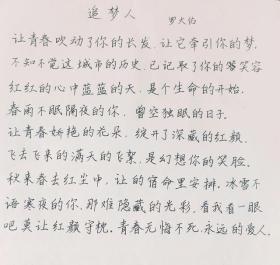 追梦人
罗大佑
让青春吹动了你的长发,让它牵引你的梦.
不知不觉这城市的历史,已记取了你的笑容
红红的心中蓝蓝的天,是个生命的开始.
春雨不眠隔夜的你,曾空独眠的日子.
让青春娇艳的花朵,绽开了深藏的红颜.
飞去飞来的满天的飞絮,是幻想你的笑脸.
秋来春去红尘中,让的宿命里安排,冰雪不
语寒夜的你,那难隐藏的光彩,看我看一眼
吧莫让红颜守枕,青春无悔不死,永远的爱人.